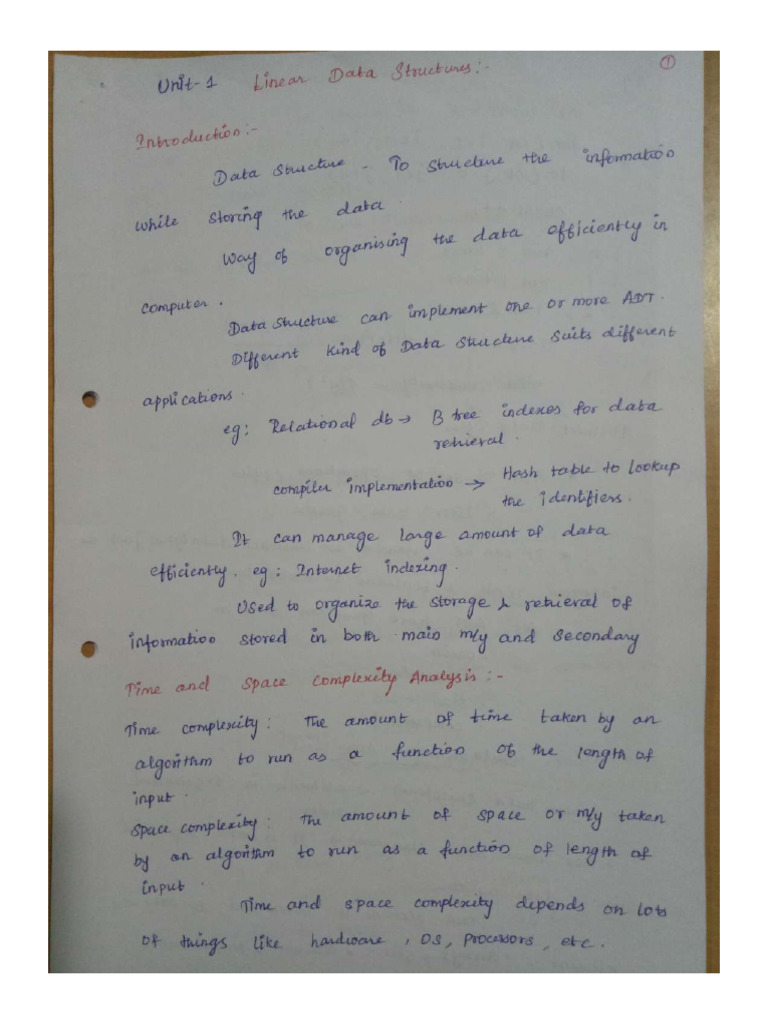 ①
Unit-1 Linear Data Structures:-
Introduction:-
Data Structure - To structure the information
while storing the data.
Way of organising the data efficiently in
computer.
Data Structure can implement one or more ADT.
Different kind of Data Structure suits different
applications.
eg: Relational db → B tree indexes for data
retrieval.
compiler implementation → Hash table to lookup
the identifiers.
It can manage large amount of data
efficiently. eg: Internet indexing.
Used to organize the storage & retrieval of
information stored in both main m/y and secondary
Time and Space Complexity Analysis:-
Time complexity: The amount of time taken by an
algorithm to run as a function of the length of
input.
Space complexity: The amount of space or m/y taken
by an algorithm to run as a function of length of
input.
Time and space complexity depends on lots
of things like hardware, OS, processors, etc.